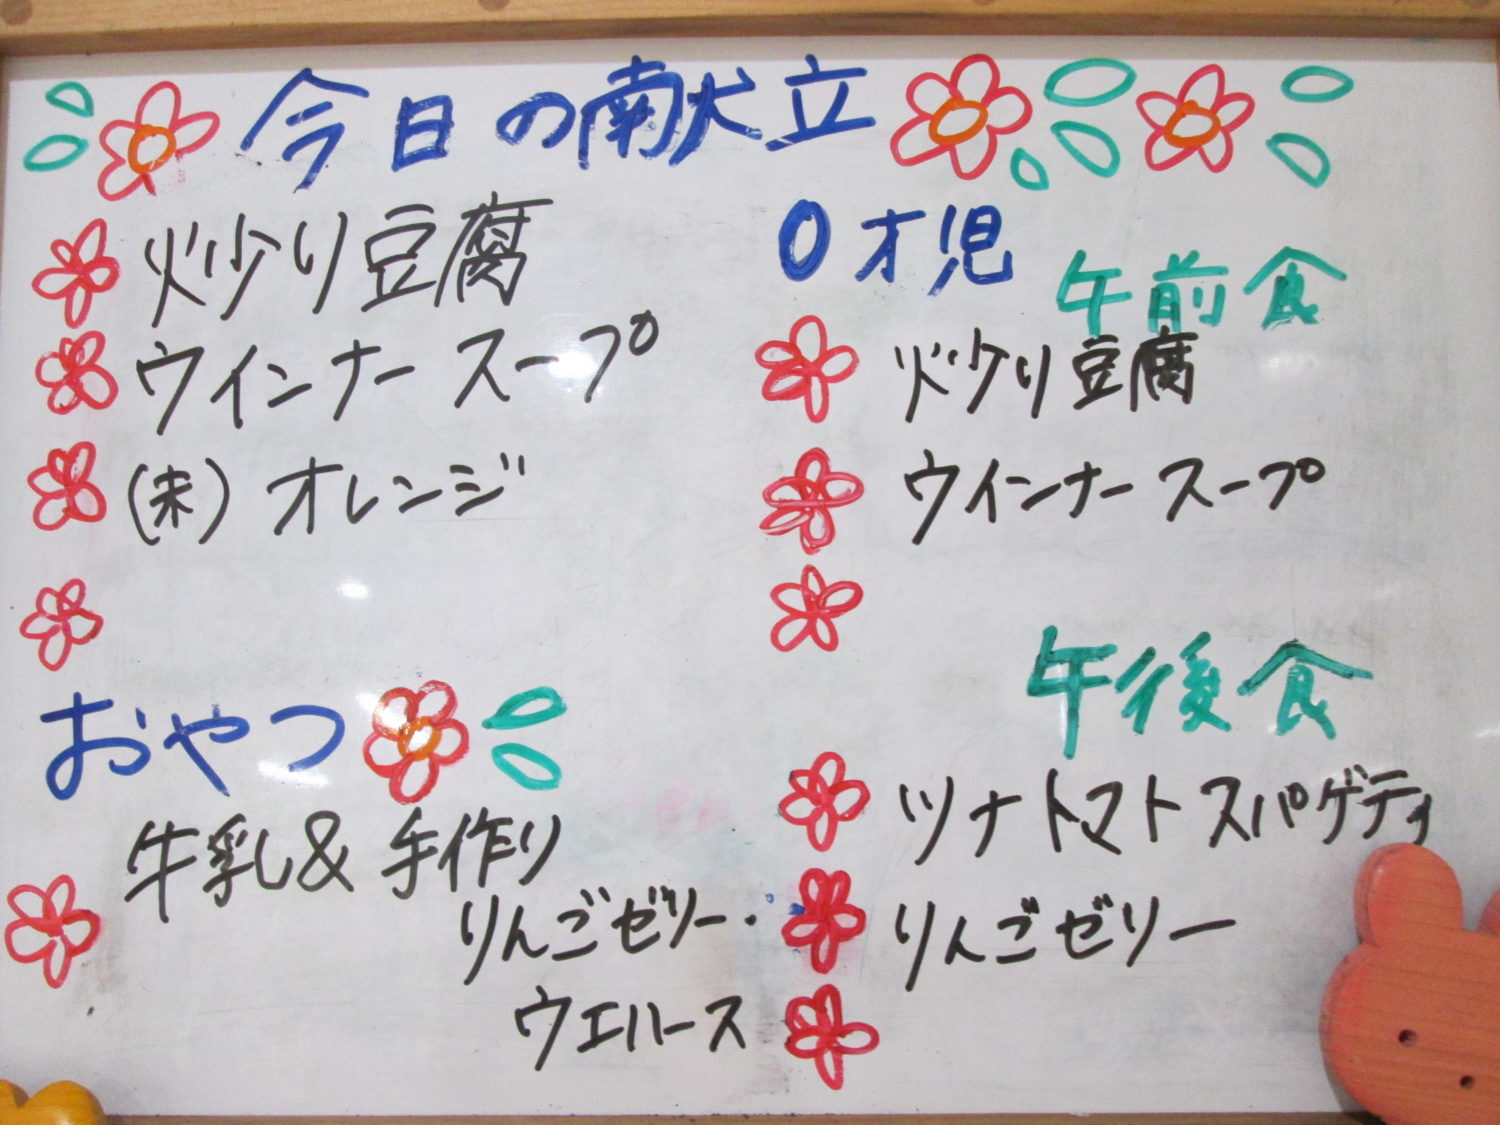 今日の献立
炒り豆腐
ウインナースープ
(未) オレンジ
おやつ
牛乳&手作り
りんごゼリー・
ウエハース
0才児
午前食
炒り豆腐
ウインナースープ
午後食
ツナトマトスパゲティ
りんごゼリー